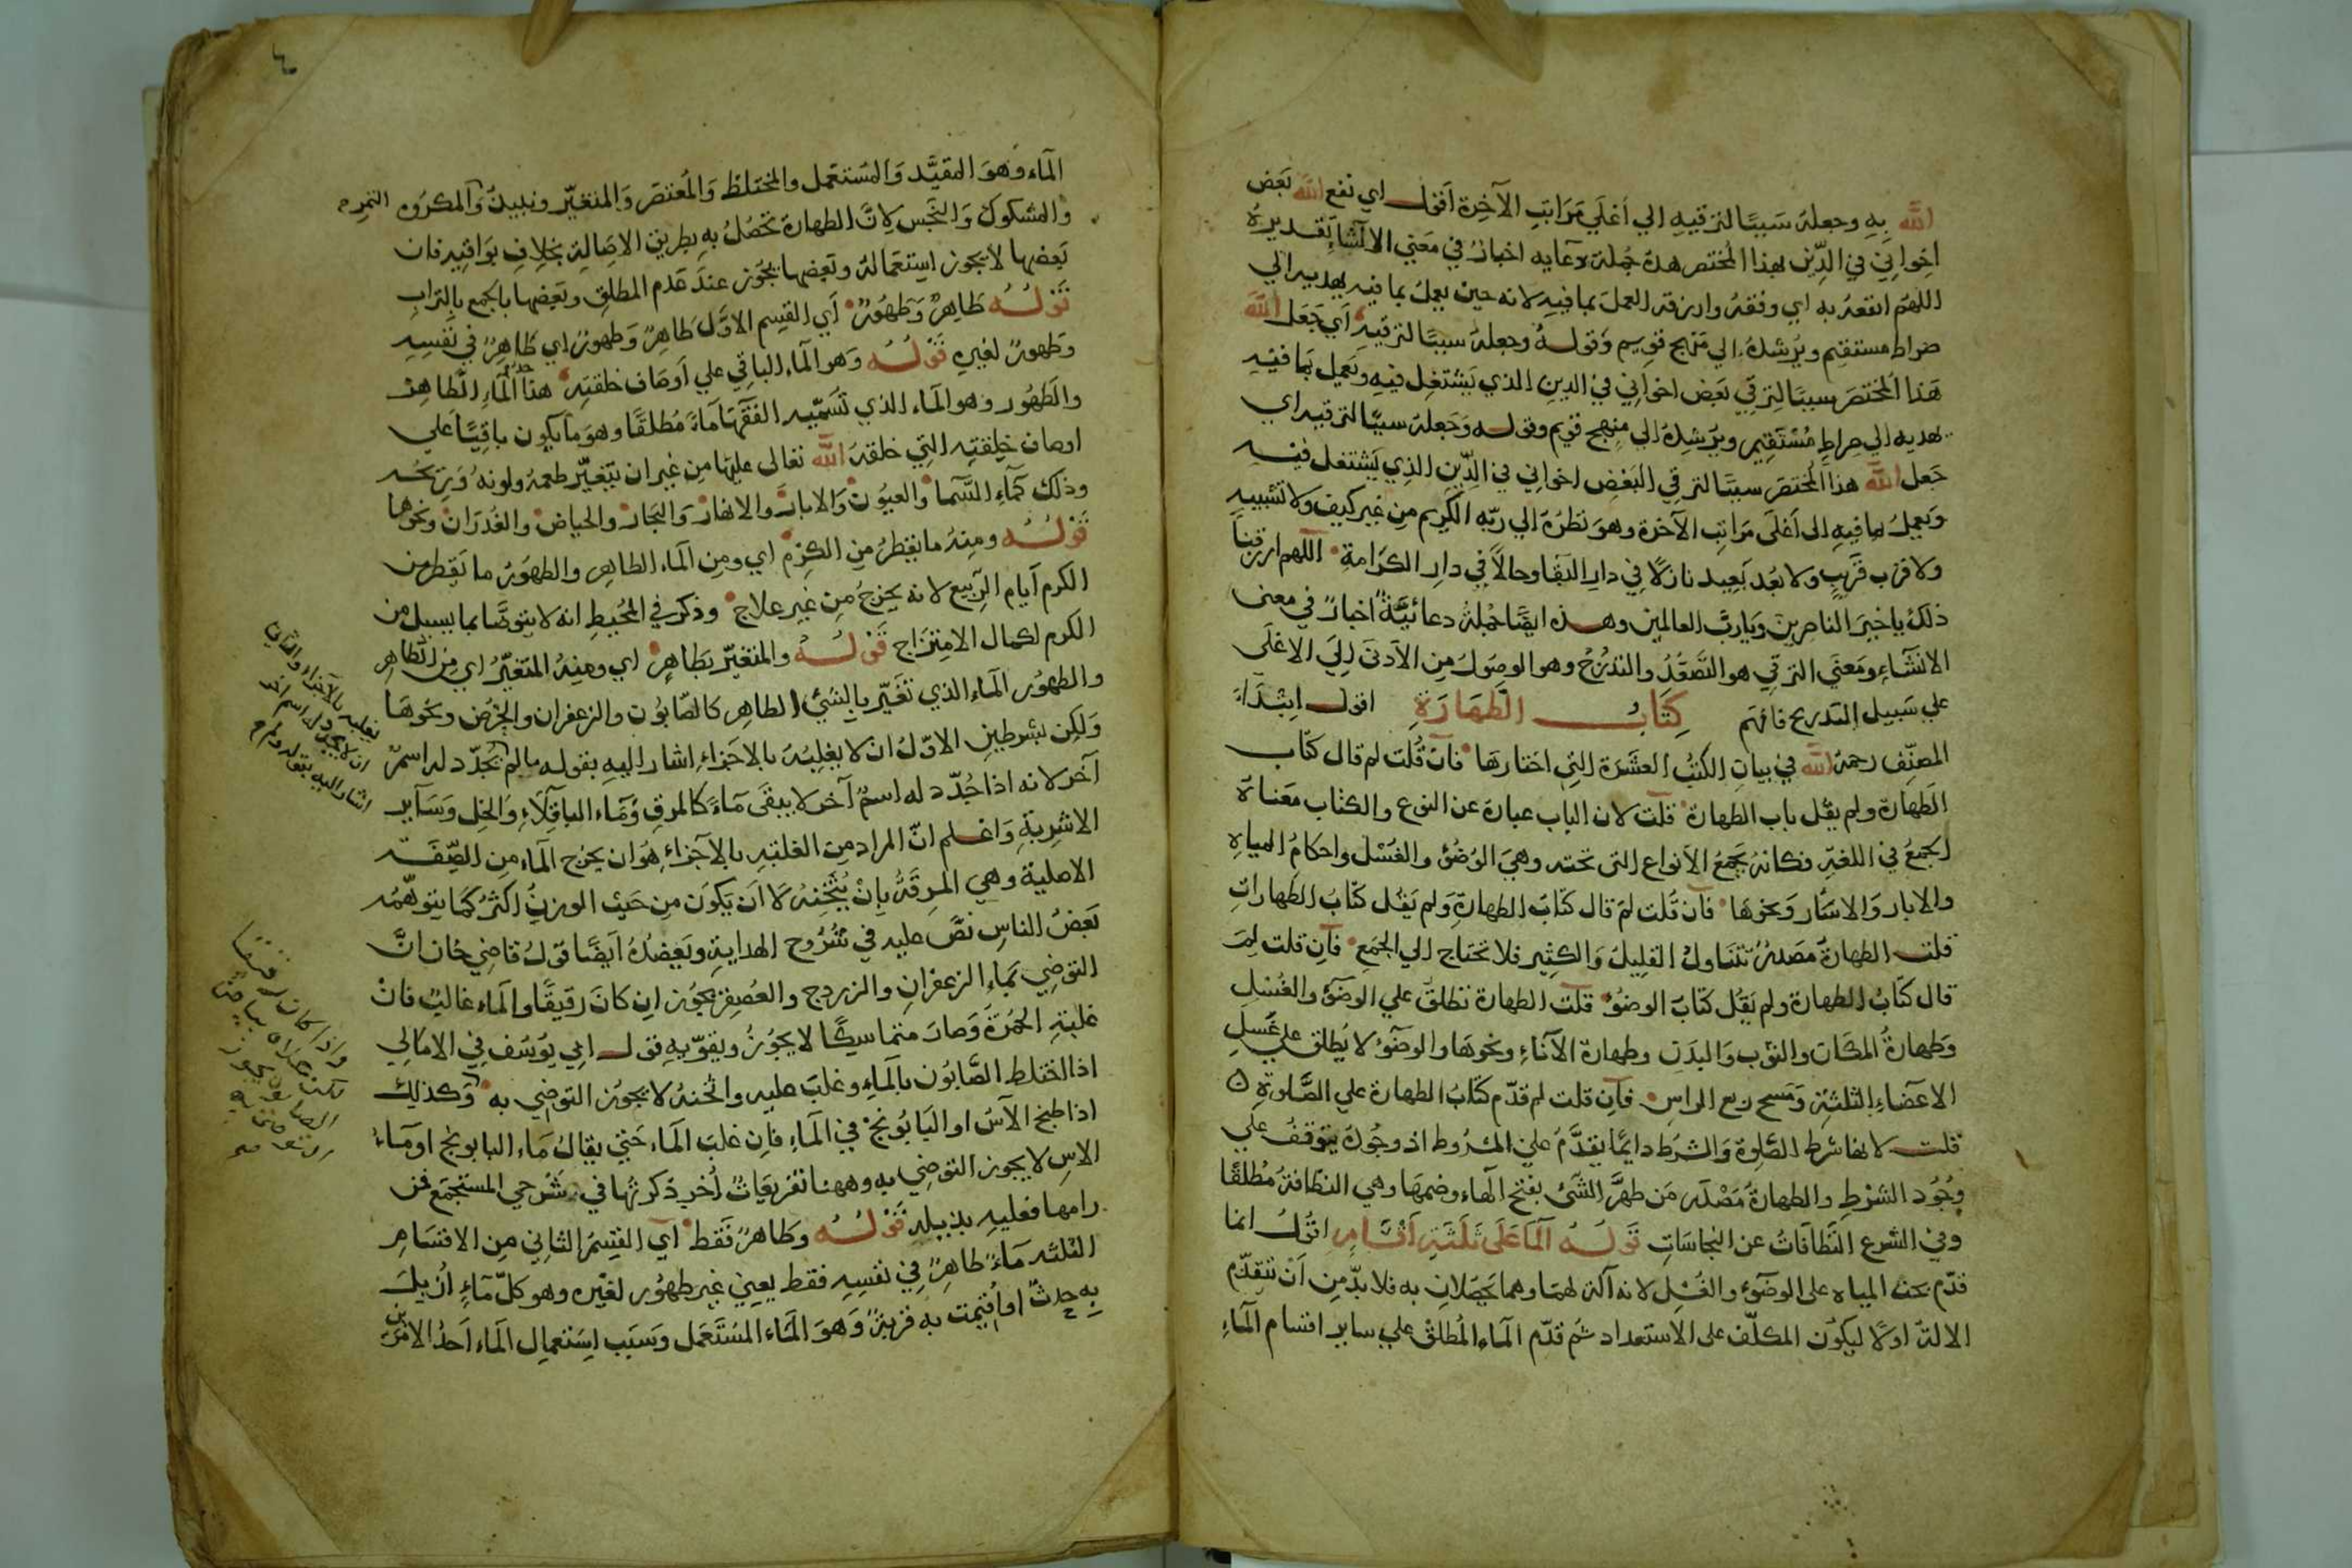 الله به وجعله سببا لترقيه الي أعلي مراتب الآخرة أقول اي نفع الله بعض
اخواني في الدين بهذا المختصر هذه جملة دعايه اخبار في معني الانشاء تقديره
اللهم انفعه به اي وفقه وارزقه العمل بما فيه لانه حين يعمل بما فيه يهديه الي
صراط مستقيم ويرشده الي منهج قويم وقوله وجعله سببا لترقيه أي جعل الله
هذا المختصر سببا لترقي بعض اخواني في الدين الذي يشتغل فيه ويعمل بما فيه
يهديه الي صراط مستقيم ويرشده الي منهج قويم وقوله وجعله سببا لترقيه اي
جعل الله هذا المختصر سببا لترقي البعض اخواني في الدين الذي يشتغل فيه
ويعمل بما فيه الى أعلى مراتب الآخرة وهو نظره الي ربه الكريم من غير كيف ولا تشبيه
ولا قرب قريب ولا بعد بعيد نازلا في دار البقا وحالا في دار الكرامة اللهم ارزقنا
ذلك يا خير الناصرين ويا رب العالمين وهذه ايضا جملة دعائية اخبار في معنى
الانشاء ومعني الترقي هو التصعد والتدرج وهو الوصول من الأدنى إلي الاعلى
علي سبيل التدريج فافهم كتاب الطهارة اقول ابتداء
المصنف رحمه الله في بيان الكتب العشرة التي اختارها فان قلت لم قال كتاب
الطهارة ولم يقل باب الطهارة قلت لان الباب عبارة عن النوع والكتاب معناه
الجمع في اللغة فكانه يجمع الأنواع التى تحته وهي الوضوء والغسل واحكام المياه
والابار والاسار ونحوها فان قلت لم قال كتاب الطهارة ولم يقل كتاب الطهارات
قلت الطهارة مصدر تتناول القليل والكثير فلا تحتاج الي الجمع فان قلت لم
قال كتاب الطهارة ولم يقل كتاب الوضوء قلت الطهارة تطلق علي الوضوء والغسل
وطهارة المكان والثوب والبدن وطهارة الآناء ونحوها والوضوء لا يطلق علي غسل
الاعضاء الثلثة ومسح ربع الراس فان قلت لم قدم كتاب الطهارة علي الصلوة
قلت لانها شرط الصلوة والشرط دايما يقدم علي المشروط اذ وجوده يتوقف علي
وجود الشرط والطهارة مصدر من طهر الشئ بفتح الهاء وضمها وهي النظافة مطلقا
وفي الشرع النظافات عن النجاسات قوله الما على ثلثة أقسام اقول انما
قدم بحث المياه على الوضوء والغسل لانه آلة لهما وهما يحصلان به فلا بد من أن تتقدم
الالة اولا ليكون المكلف على الاستعداد ثم قدم الماء المطلق علي ساير اقسام الماء
الماء وهو المقيد والمستعمل والمختلط والمعتصر والمتغير ونبيذ والمكروه التمر
والمشكوك والنجس لان الطهارة تحصل به بطريق الاصالة بخلاف بواقيه فان
بعضها لا يجوز استعماله وبعضها يجوز عند عدم المطلق وبعضها بالجمع بالتراب
قوله طاهر وطهور أي القسم الاول طاهر وطهور اي طاهر في نفسه
وطهور لغيره قوله وهو الماء الباقي علي أوصاف خلقته هذا حد الماء الطاهر
والطهور وهو الماء الذي تسميه الفقها ماء مطلقا وهو ما يكون باقيا علي
اوصاف خلقته التي خلقه الله تعالى عليها من غير ان يتغير طعمه ولونه وريحه
وذلك كماء السما والعيون والابار والانهار والبحار والحياض والغدران ونحوها
قوله ومنه ما يقطر من الكرم اي ومن الماء الطاهر والطهور ما يقطر من
الكرم أيام الربيع لانه يخرج من غير علاج وذكر في المحيط انه لا يتوضا بما يسيل من
الكرم لكمال الامتزاج قوله والمتغير بطاهر اي ومنه المتغير اي من الطاهر
والطهور الماء الذي تغير بالشئ الطاهر كالصابون والزعفران والحرض ونحوها
ولكن بشرطين الاول ان لا يغلبه بالاجزاء اشار اليه بقوله ما لم يجدد له اسم
آخر لانه اذا جدد له اسم آخر لا يبقى ماء كالمرق وماء الباقلاء والخل وساير
الاشربة واعلم ان المراد من الغلبة بالاجزاء هو ان يخرج الماء من الصفة
الاصلية وهي الرقة بان يثخنه لا أن يكون من حيث الوزن اكثر كما يتوهمه
بعض الناس نص عليه في شروح الهداية ويعضده أيضا قول قاضي خان ان
التوضي بماء الزعفران والزردج والعصفر يجوز ان كان رقيقا والماء غالب فان
غلبته الحمرة وصار متماسكا لا يجوز ويقويه قول ابي يوسف في الامالي
اذا اختلط الصابون بالماء وغلب عليه واثخنه لا يجوز التوضي به وكذلك
اذا طبخ الآس او البابونج في الماء فان غلب الماء حتي يقال ماء البابونج او ماء
الاس لا يجوز التوضي به وههنا تفريعات أخر ذكرتها في شرحي المستجمع فمن
رامها فعليه بذيله قوله وطاهر فقط أي القسم الثاني من الاقسام
الثلثه ماء طاهر في نفسه فقط يعني غير طهور لغيره وهو كل ماء أزيل
به حدث او أقيمت به قربة وهو الماء المستعمل وسبب استعمال الماء احد الامرين
يغلبه بالاجزاء والثاني
ان لا يجدد له اسم اخر
اشار اليه بقوله ما لم